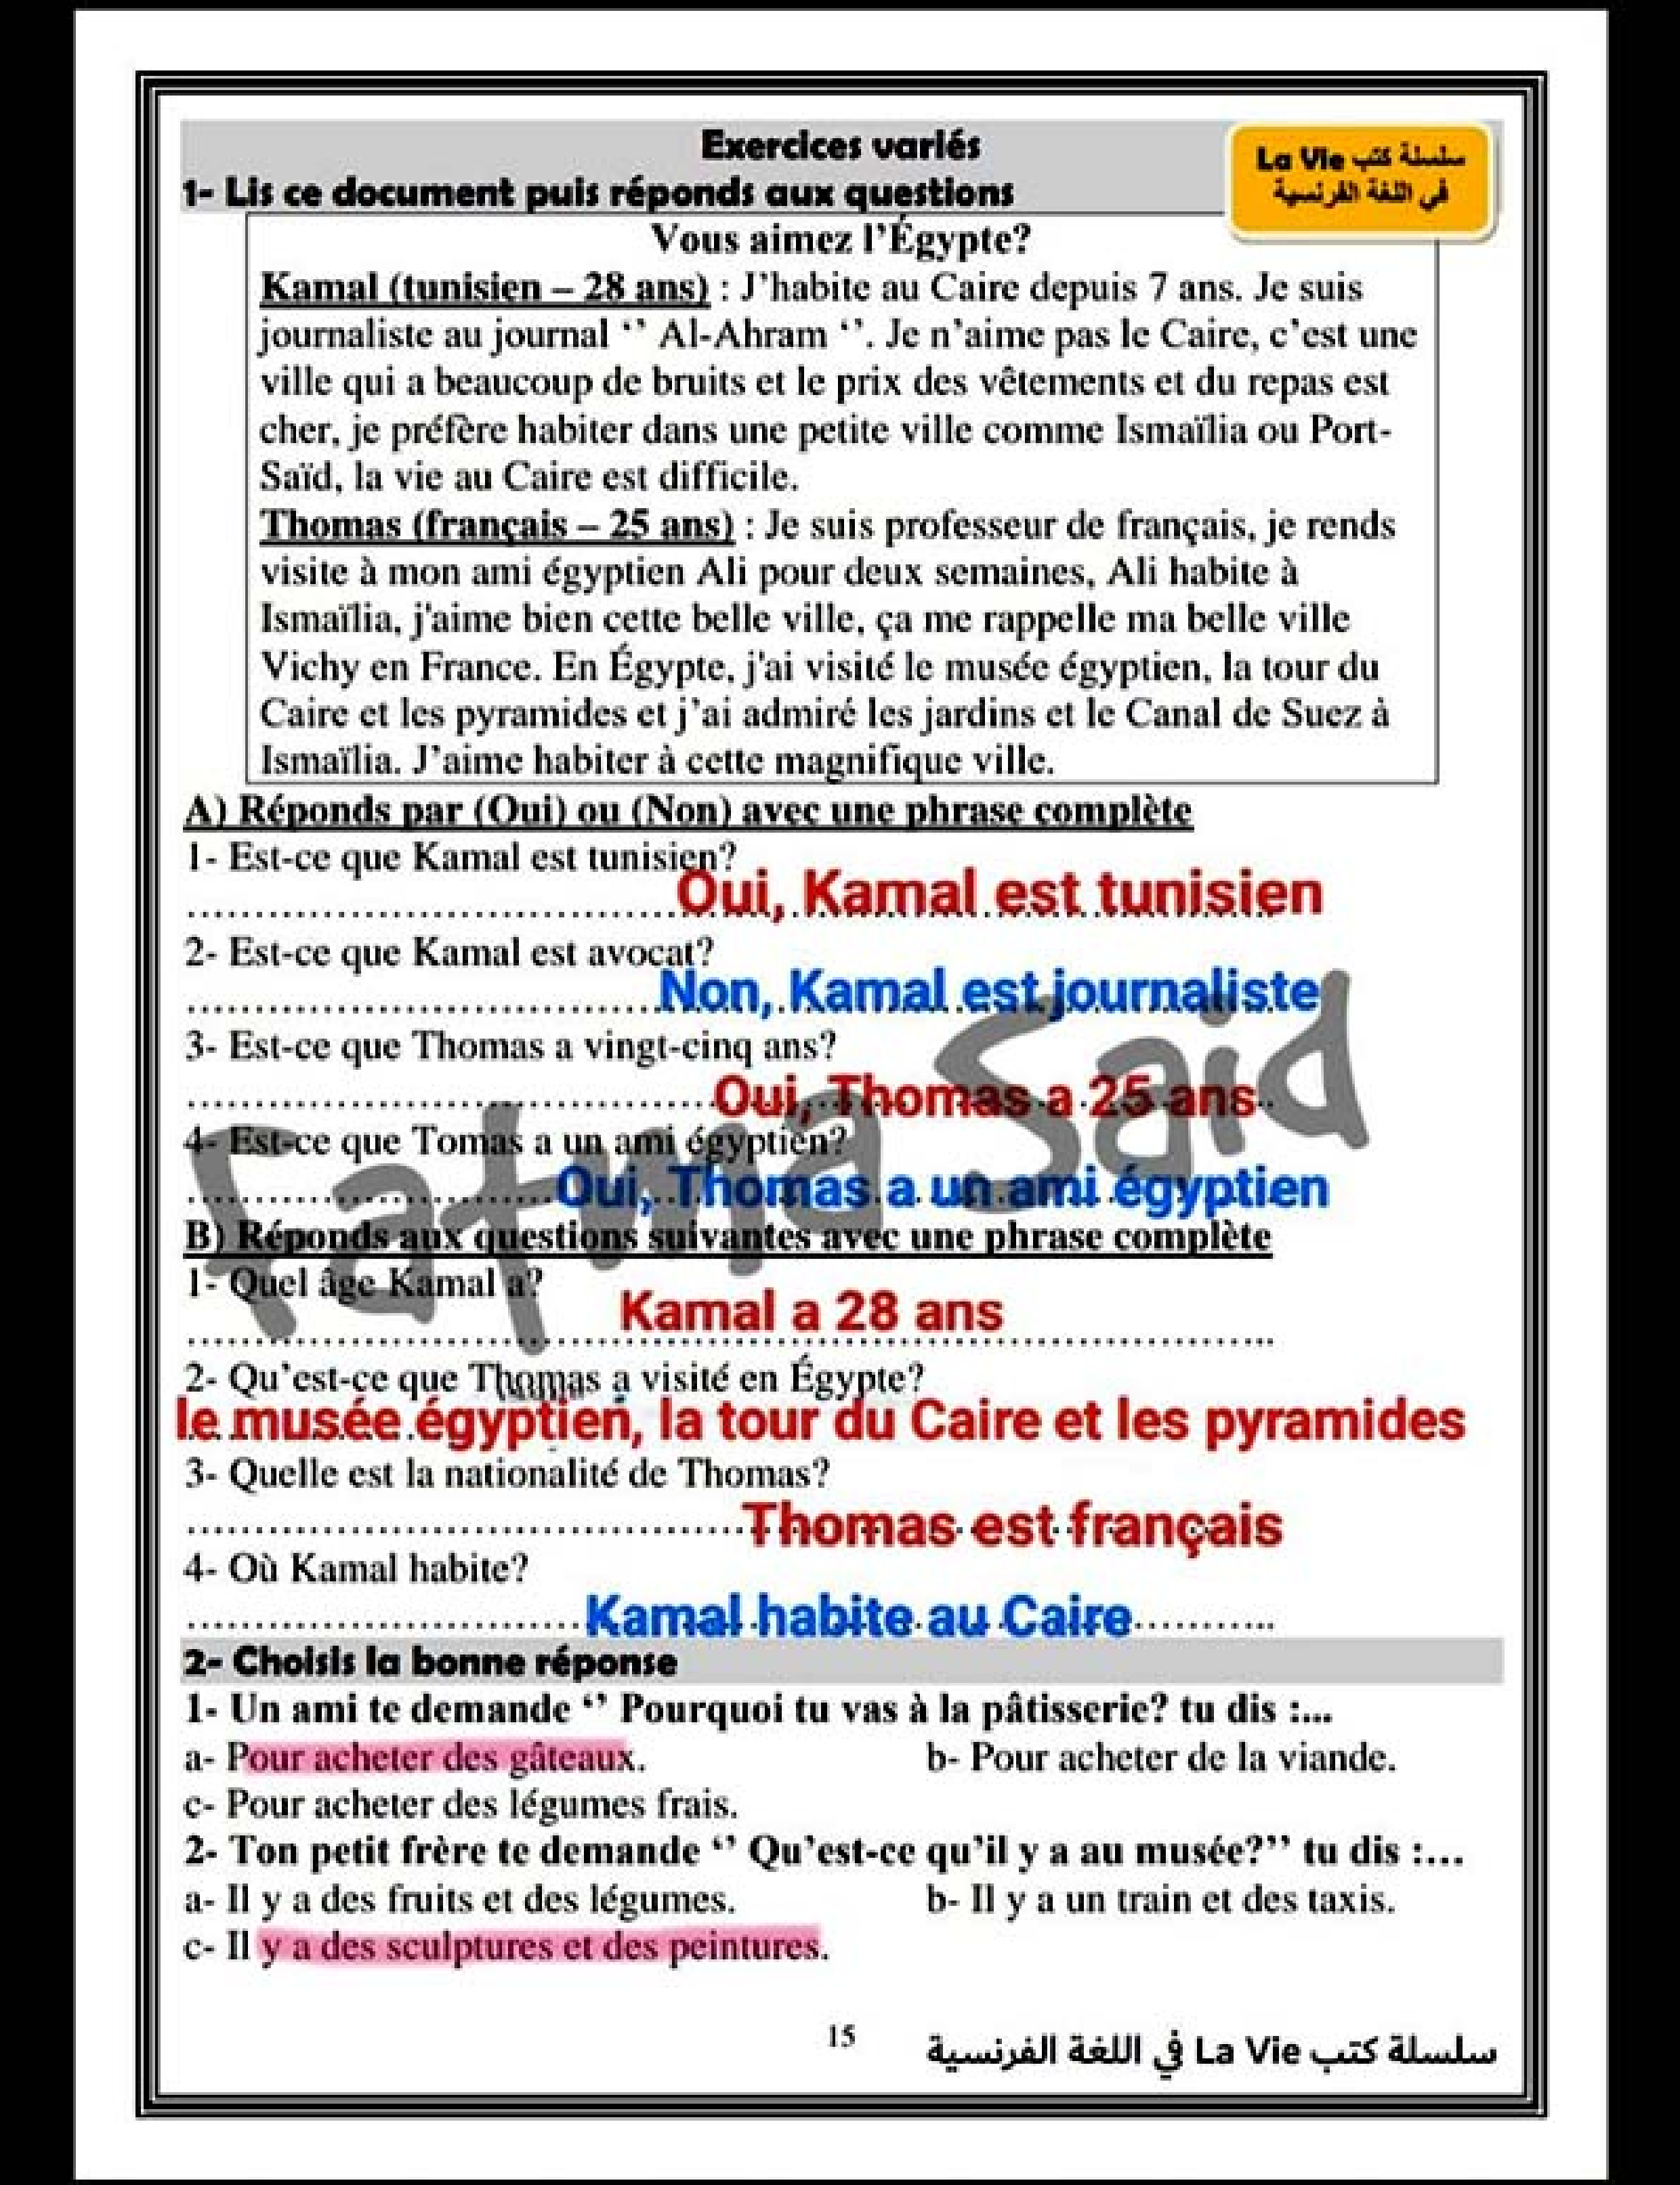 Exercices variés
سلسلة كتب La Vie
في اللغة الفرنسية
1- Lis ce document puis réponds aux questions
Vous aimez l’Égypte?
Kamal (tunisien – 28 ans) : J’habite au Caire depuis 7 ans. Je suis
journaliste au journal ‘’ Al-Ahram ‘’. Je n’aime pas le Caire, c’est une
ville qui a beaucoup de bruits et le prix des vêtements et du repas est
cher, je préfère habiter dans une petite ville comme Ismaïlia ou Port-
Saïd, la vie au Caire est difficile.
Thomas (français – 25 ans) : Je suis professeur de français, je rends
visite à mon ami égyptien Ali pour deux semaines, Ali habite à
Ismaïlia, j'aime bien cette belle ville, ça me rappelle ma belle ville
Vichy en France. En Égypte, j'ai visité le musée égyptien, la tour du
Caire et les pyramides et j’ai admiré les jardins et le Canal de Suez à
Ismaïlia. J’aime habiter à cette magnifique ville.
A) Réponds par (Oui) ou (Non) avec une phrase complète
1- Est-ce que Kamal est tunisien?
Oui, Kamal est tunisien
2- Est-ce que Kamal est avocat?
Non, Kamal est journaliste
3- Est-ce que Thomas a vingt-cinq ans?
Oui, Thomas a 25 ans
4- Est-ce que Tomas a un ami égyptien?
Oui, Thomas a un ami égyptien
Fatma Said
B) Réponds aux questions suivantes avec une phrase complète
1- Quel âge Kamal a?
Kamal a 28 ans
2- Qu’est-ce que Thomas a visité en Égypte?
le musée égyptien, la tour du Caire et les pyramides
3- Quelle est la nationalité de Thomas?
Thomas est français
4- Où Kamal habite?
Kamal habite au Caire
2- Choisis la bonne réponse
1- Un ami te demande ‘’ Pourquoi tu vas à la pâtisserie? tu dis :...
a- Pour acheter des gâteaux. b- Pour acheter de la viande.
c- Pour acheter des légumes frais.
2- Ton petit frère te demande ‘’ Qu’est-ce qu’il y a au musée?’’ tu dis :...
a- Il y a des fruits et des légumes. b- Il y a un train et des taxis.
c- Il y a des sculptures et des peintures.
15
سلسلة كتب La Vie في اللغة الفرنسية